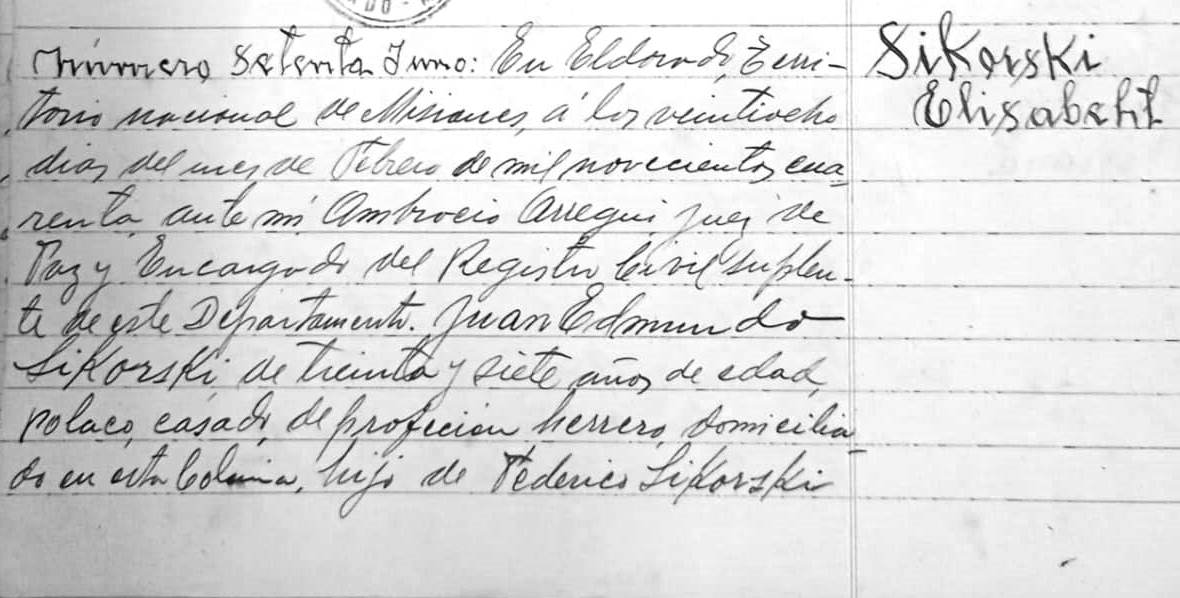 Número, Setenta Juno: En Eldorado, Terri-
torio nacional de Misiones, á los veintiocho
dias del mes de Febrero de mil novecientos cua-
renta ante mi Ambrocio Arregui Juez de
Paz y Encargado del Registro Civil suplen-
te de este Departamento. Juan Edmundo
Sikorski de treinta y siete años de edad,
polaco, casado, de profecion herrero, domicilia-
do en esta Colonia, hijo de Federico Sikorski
Sikorski
Elisabeht